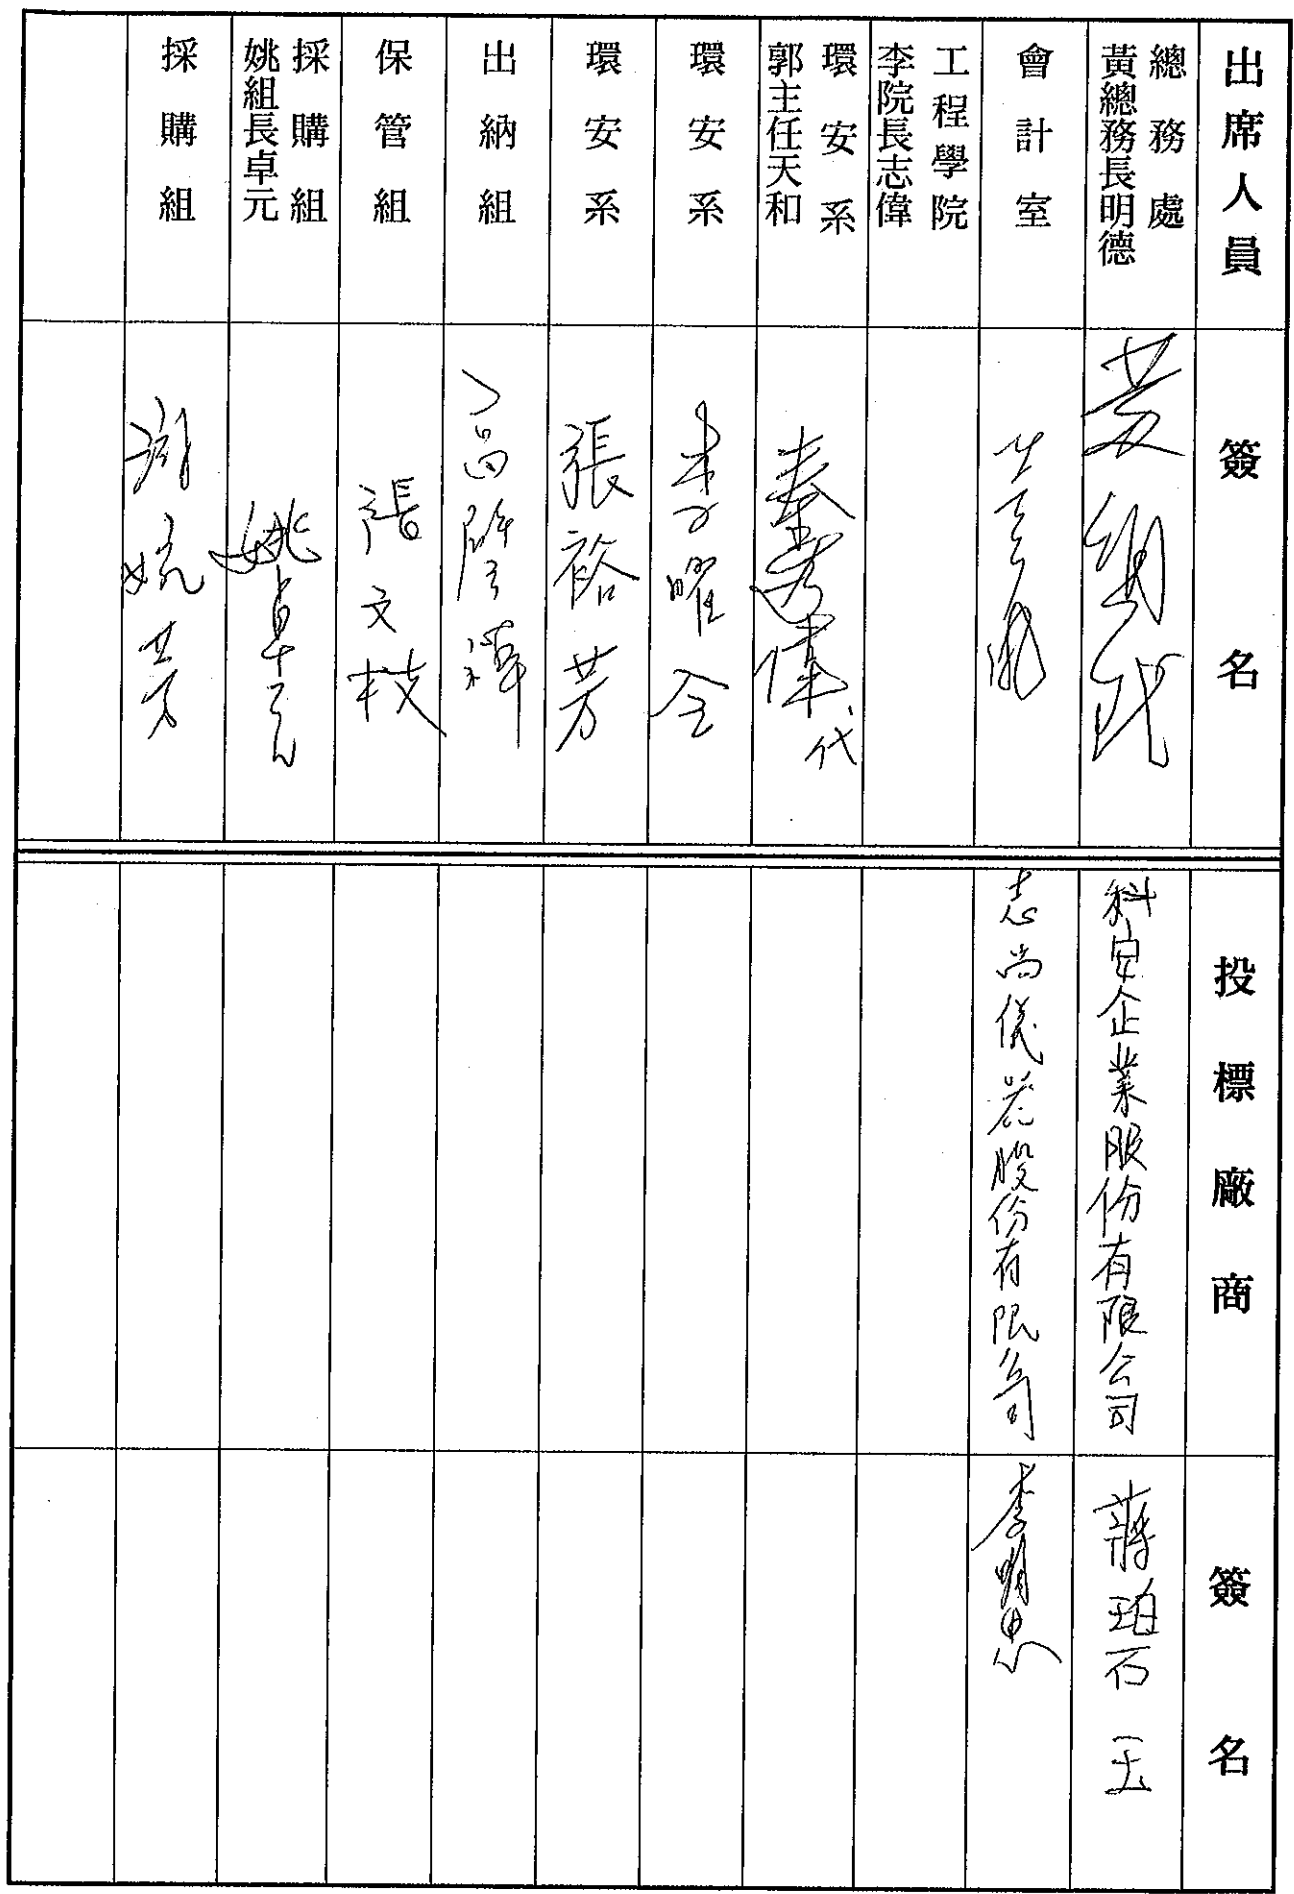 出席人員
簽名
投標廠商
簽名
總務處
黃總務長明德
科安企業股份有限公司
蔣珀石
會計室
志尚儀器股份有限公司
李明忠
工程學院
李院長志偉
環安系
郭主任天和
秦孝偉代
環安系
李曜全
環安系
張裕芳
出納組
保管組
張文枝
採購組
姚組長卓元
姚卓元
採購組